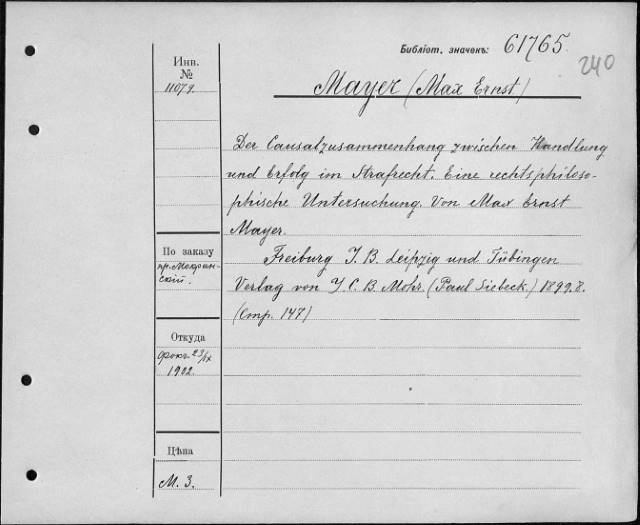 Библіот. значекъ: 61765.
240
Инв.
№
11079.
Mayer (Max Ernst)
Der Causalzusammenhang zwischen Handlung
und Erfolg im Strafrecht. Eine rechtsphiloso-
phische Untersuchung. Von Max Ernst
Mayer.
Freiburg I. B. Leipzig und Tübingen
Verlag von J. C. B. Mohr. (Paul Siebeck) 1899. 8.
(Стр. 147)
По заказу
пр. Мокрин-
скій.
Откуда
23/IX
1902.
Цѣна
М. 3.